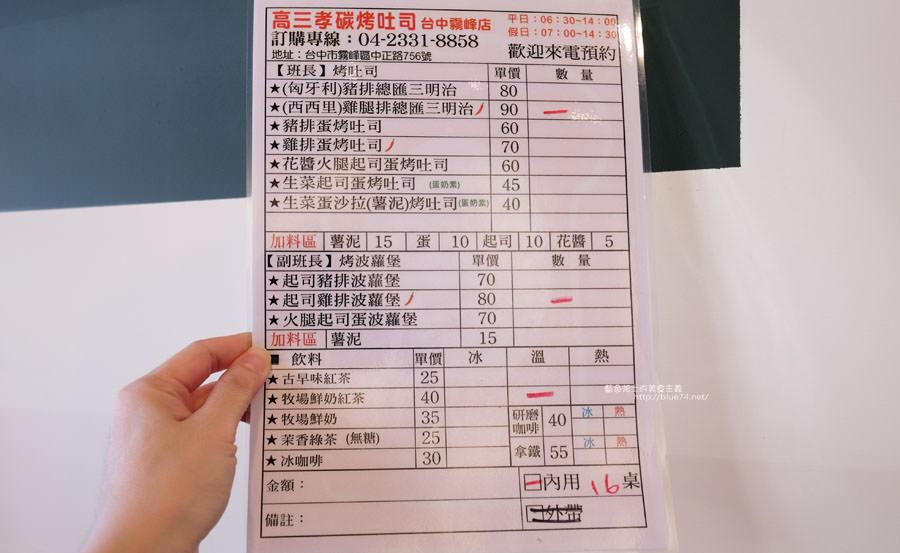 高三孝碳烤吐司 台中霧峰店
平日：06:30~14:00
假日：07:00~14:30
訂購專線：04-2331-8858
歡迎來電預約
地址：台中市霧峰區中正路756號
【班長】烤吐司 單價 數量
★(匈牙利)豬排總匯三明治 80
★(西西里)雞腿排總匯三明治 90 一
★豬排蛋烤吐司 60
★雞排蛋烤吐司 70
★花醬火腿起司蛋烤吐司 60
★生菜起司蛋烤吐司 (蛋奶素) 45
★生菜蛋沙拉(薯泥)烤吐司(蛋奶素) 40
加料區 薯泥 15 蛋 10 起司 10 花醬 5
【副班長】烤波蘿堡 單價 數量
★起司豬排波蘿堡 70
★起司雞排波蘿堡 80 一
★火腿起司蛋波蘿堡 70
加料區 薯泥 15
■ 飲料 單價 冰 溫 熱
★古早味紅茶 25
★牧場鮮奶紅茶 40 一
★牧場鮮奶 35 研磨咖啡 40 冰 熱
★茉香綠茶 (無糖) 25
★冰咖啡 30 拿鐵 55 冰 熱
金額： □內用 16 桌
備註： □外帶
http://blue74.net/